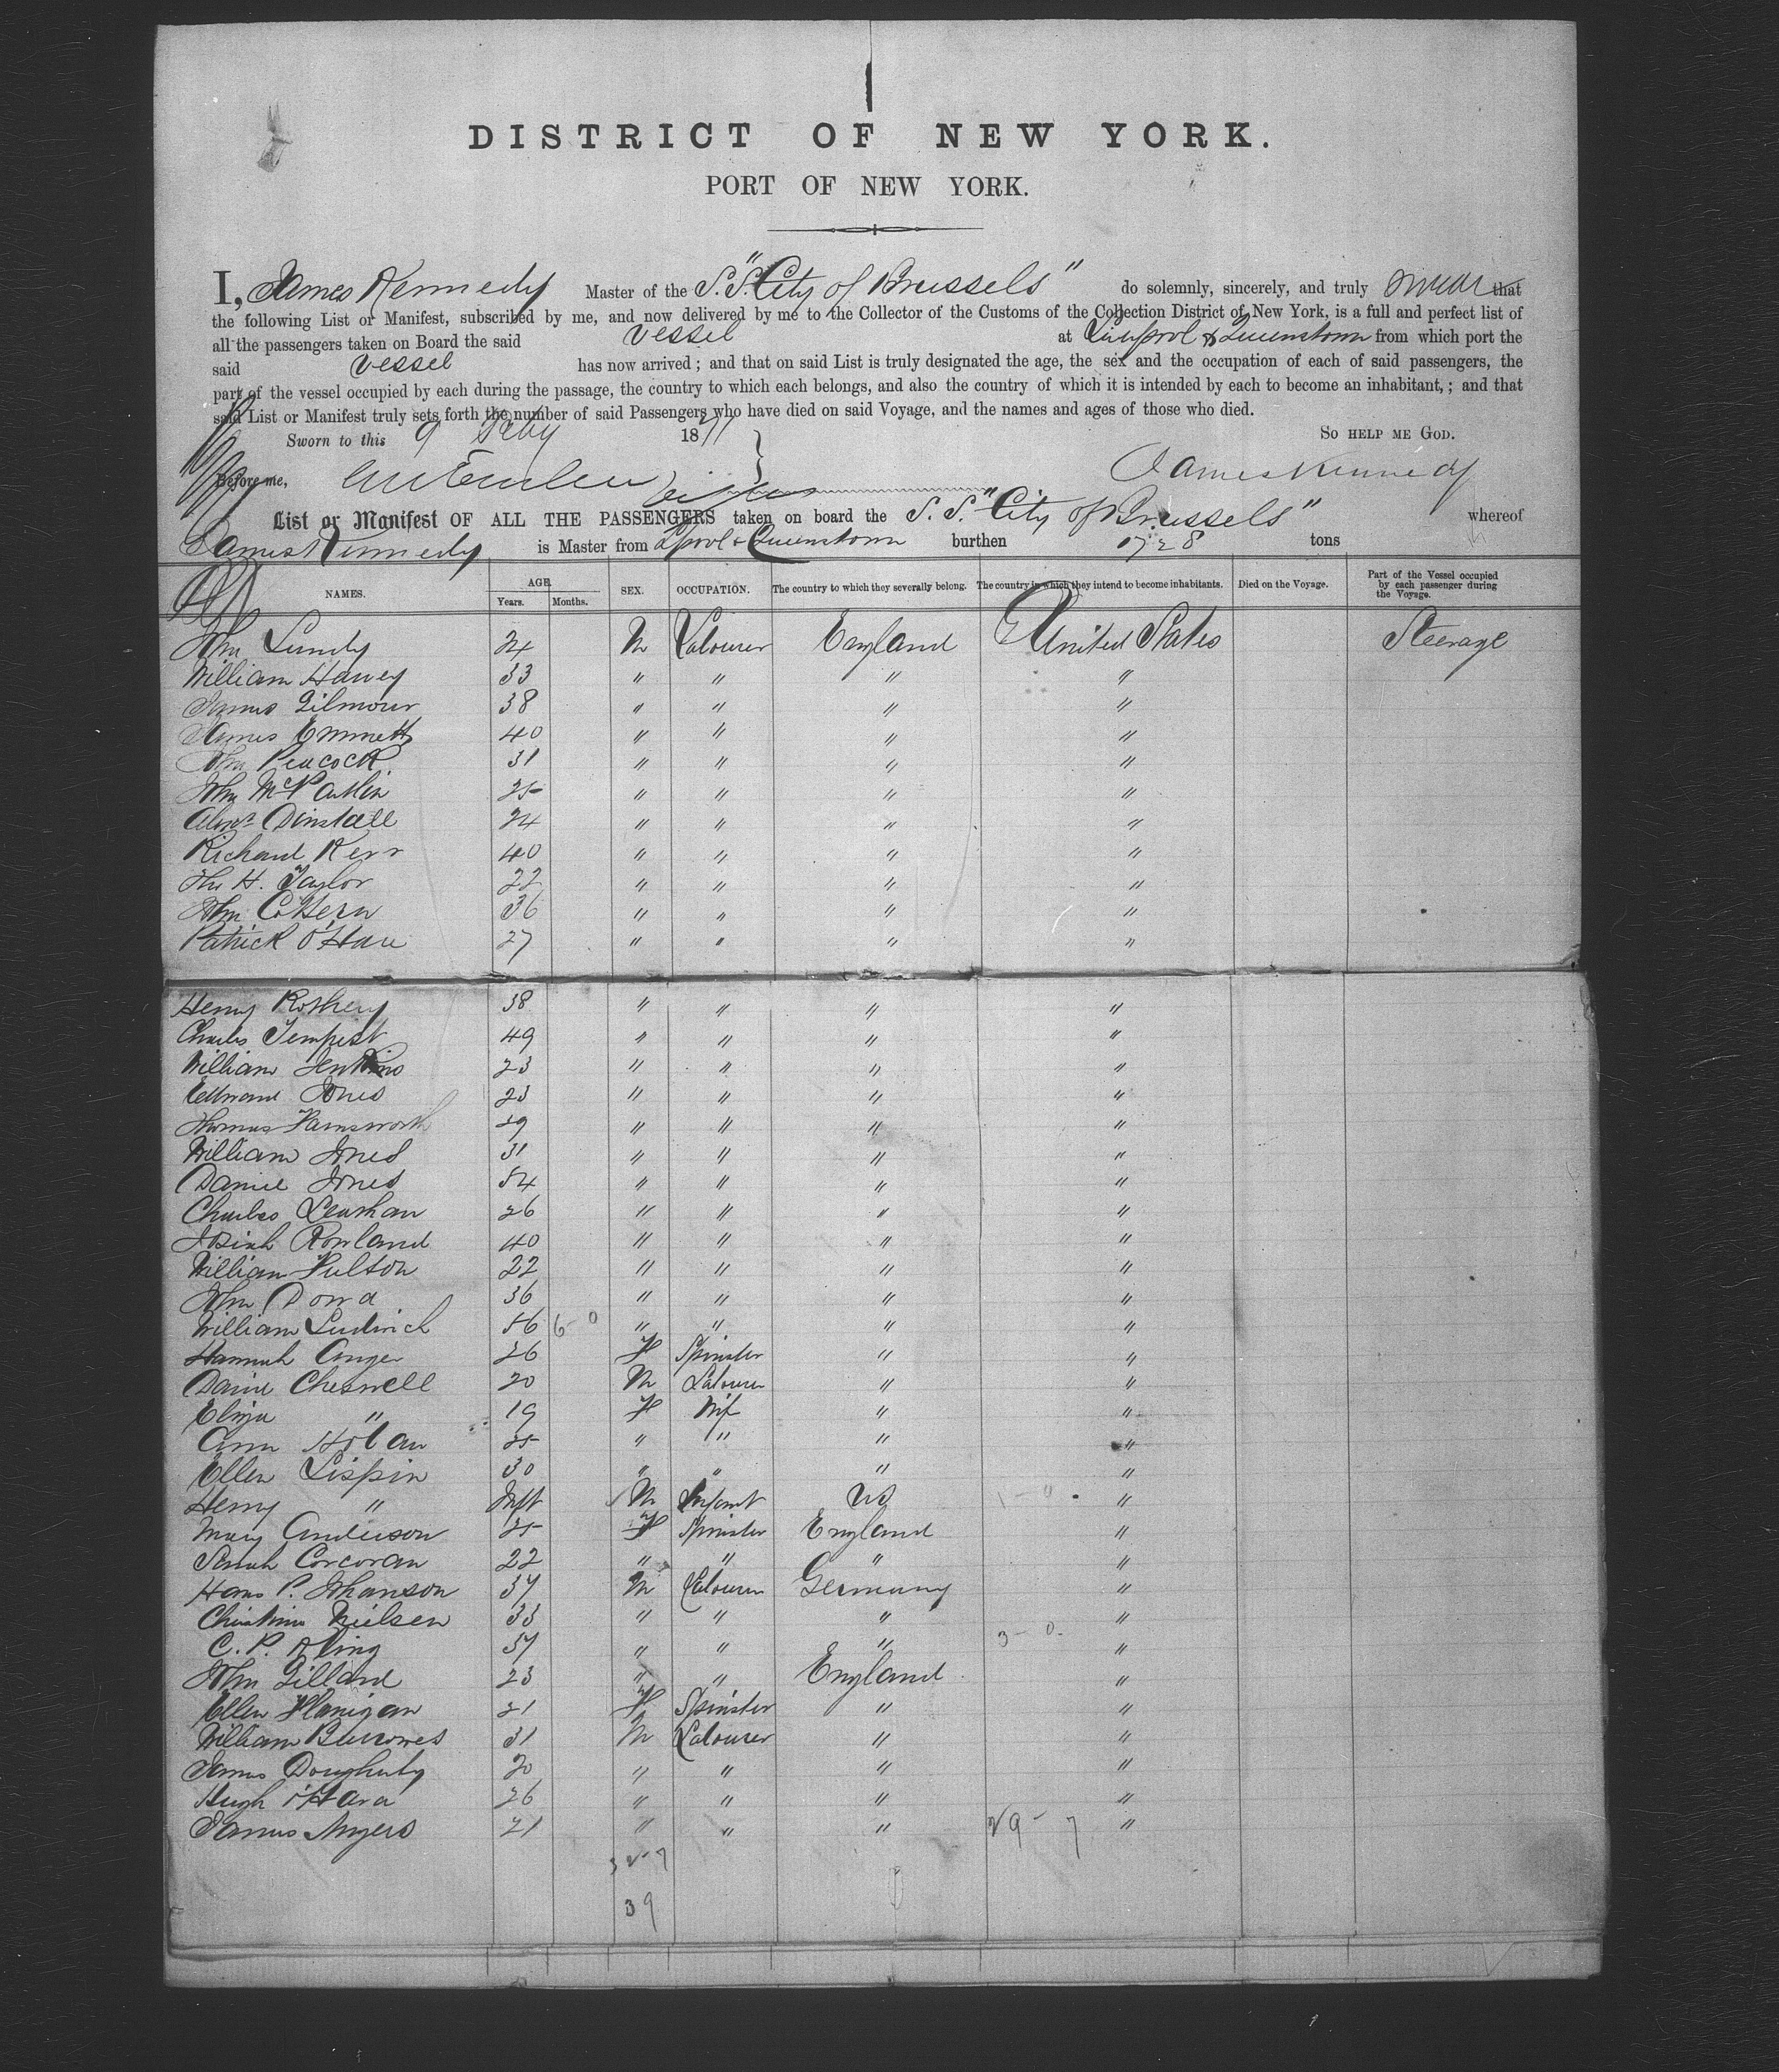 DISTRICT OF NEW YORK.
PORT OF NEW YORK.
I, James Kennedy Master of the S.S. "City of Brussels" do solemnly, sincerely, and truly swear that
the following List or Manifest, subscribed by me, and now delivered by me to the Collector of the Customs of the Collection District of New York, is a full and perfect list of
all the passengers taken on Board the said vessel at Liverpool & Queenstown from which port the
said vessel has now arrived; and that on said List is truly designated the age, the sex and the occupation of each of said passengers, the
part of the vessel occupied by each during the passage, the country to which each belongs, and also the country of which it is intended by each to become an inhabitant,; and that
said List or Manifest truly sets forth the number of said Passengers who have died on said Voyage, and the names and ages of those who died.
Sworn to this 9 Feby 1877 So help me God.
Before me, James Kennedy
List or Manifest OF ALL THE PASSENGERS taken on board the S.S. "City of Brussels" whereof
James Kennedy is Master from Lpool & Queenstown burthen tons
NAMES. AGE. Years. Months. SEX. OCCUPATION. The country to which they severally belong. The country in which they intend to become inhabitants. Died on the Voyage. Part of the Vessel occupied by each passenger during the Voyage.
John Lundy 24 M Labourer England United States Steerage
William Harvey 33 " " " "
James Gilmour 38 " " " "
James Emmett 40 " " " "
John Peacock 31 " " " "
John McPartlin 25 " " " "
Alexr Dinstall 24 " " " "
Richard Kerr 40 " " " "
H. Taylor 22 " " " "
John 36 " " " "
Patrick O'Hare 27 " " " "
Henry Rothery 38 " " " "
Charles Tempest 49 " " " "
William Jenkins 23 " " " "
Edward Jones 23 " " " "
Thomas Farnsworth 29 " " " "
William Jones 31 " " " "
Daniel Jones 54 " " " "
Charles 26 " " " "
Josiah Rowland 40 " " " "
William Fulton 22 " " " "
John Dowd 36 " " " "
William Ludwich 56 6-0 " " " "
Hannah Anger 26 F Spinster " "
David Cheswell 20 M Labourer " "
Eliza " 19 F Wife " "
Ann Hoban 25 " " " "
Ellen Lispin 30 " " " "
Henry " Inft M Infant US 1-0 "
Mary Anderson 25 F Spinster England "
Sarah Corcoran 22 " " " "
Hans P. Johanson 37 M Labourer Germany "
Nielsen 33 " " " "
C. P. Kling 57 " " " 3-0 "
John Gillard 23 " " England "
Ellen Flanigan 21 F Spinster " "
William Burrowes 31 M Labourer " "
James Dougherty 20 " " " "
Hugh O'Hara 26 " " " "
James Myers 21 " " " 29-7 "
32-7
39